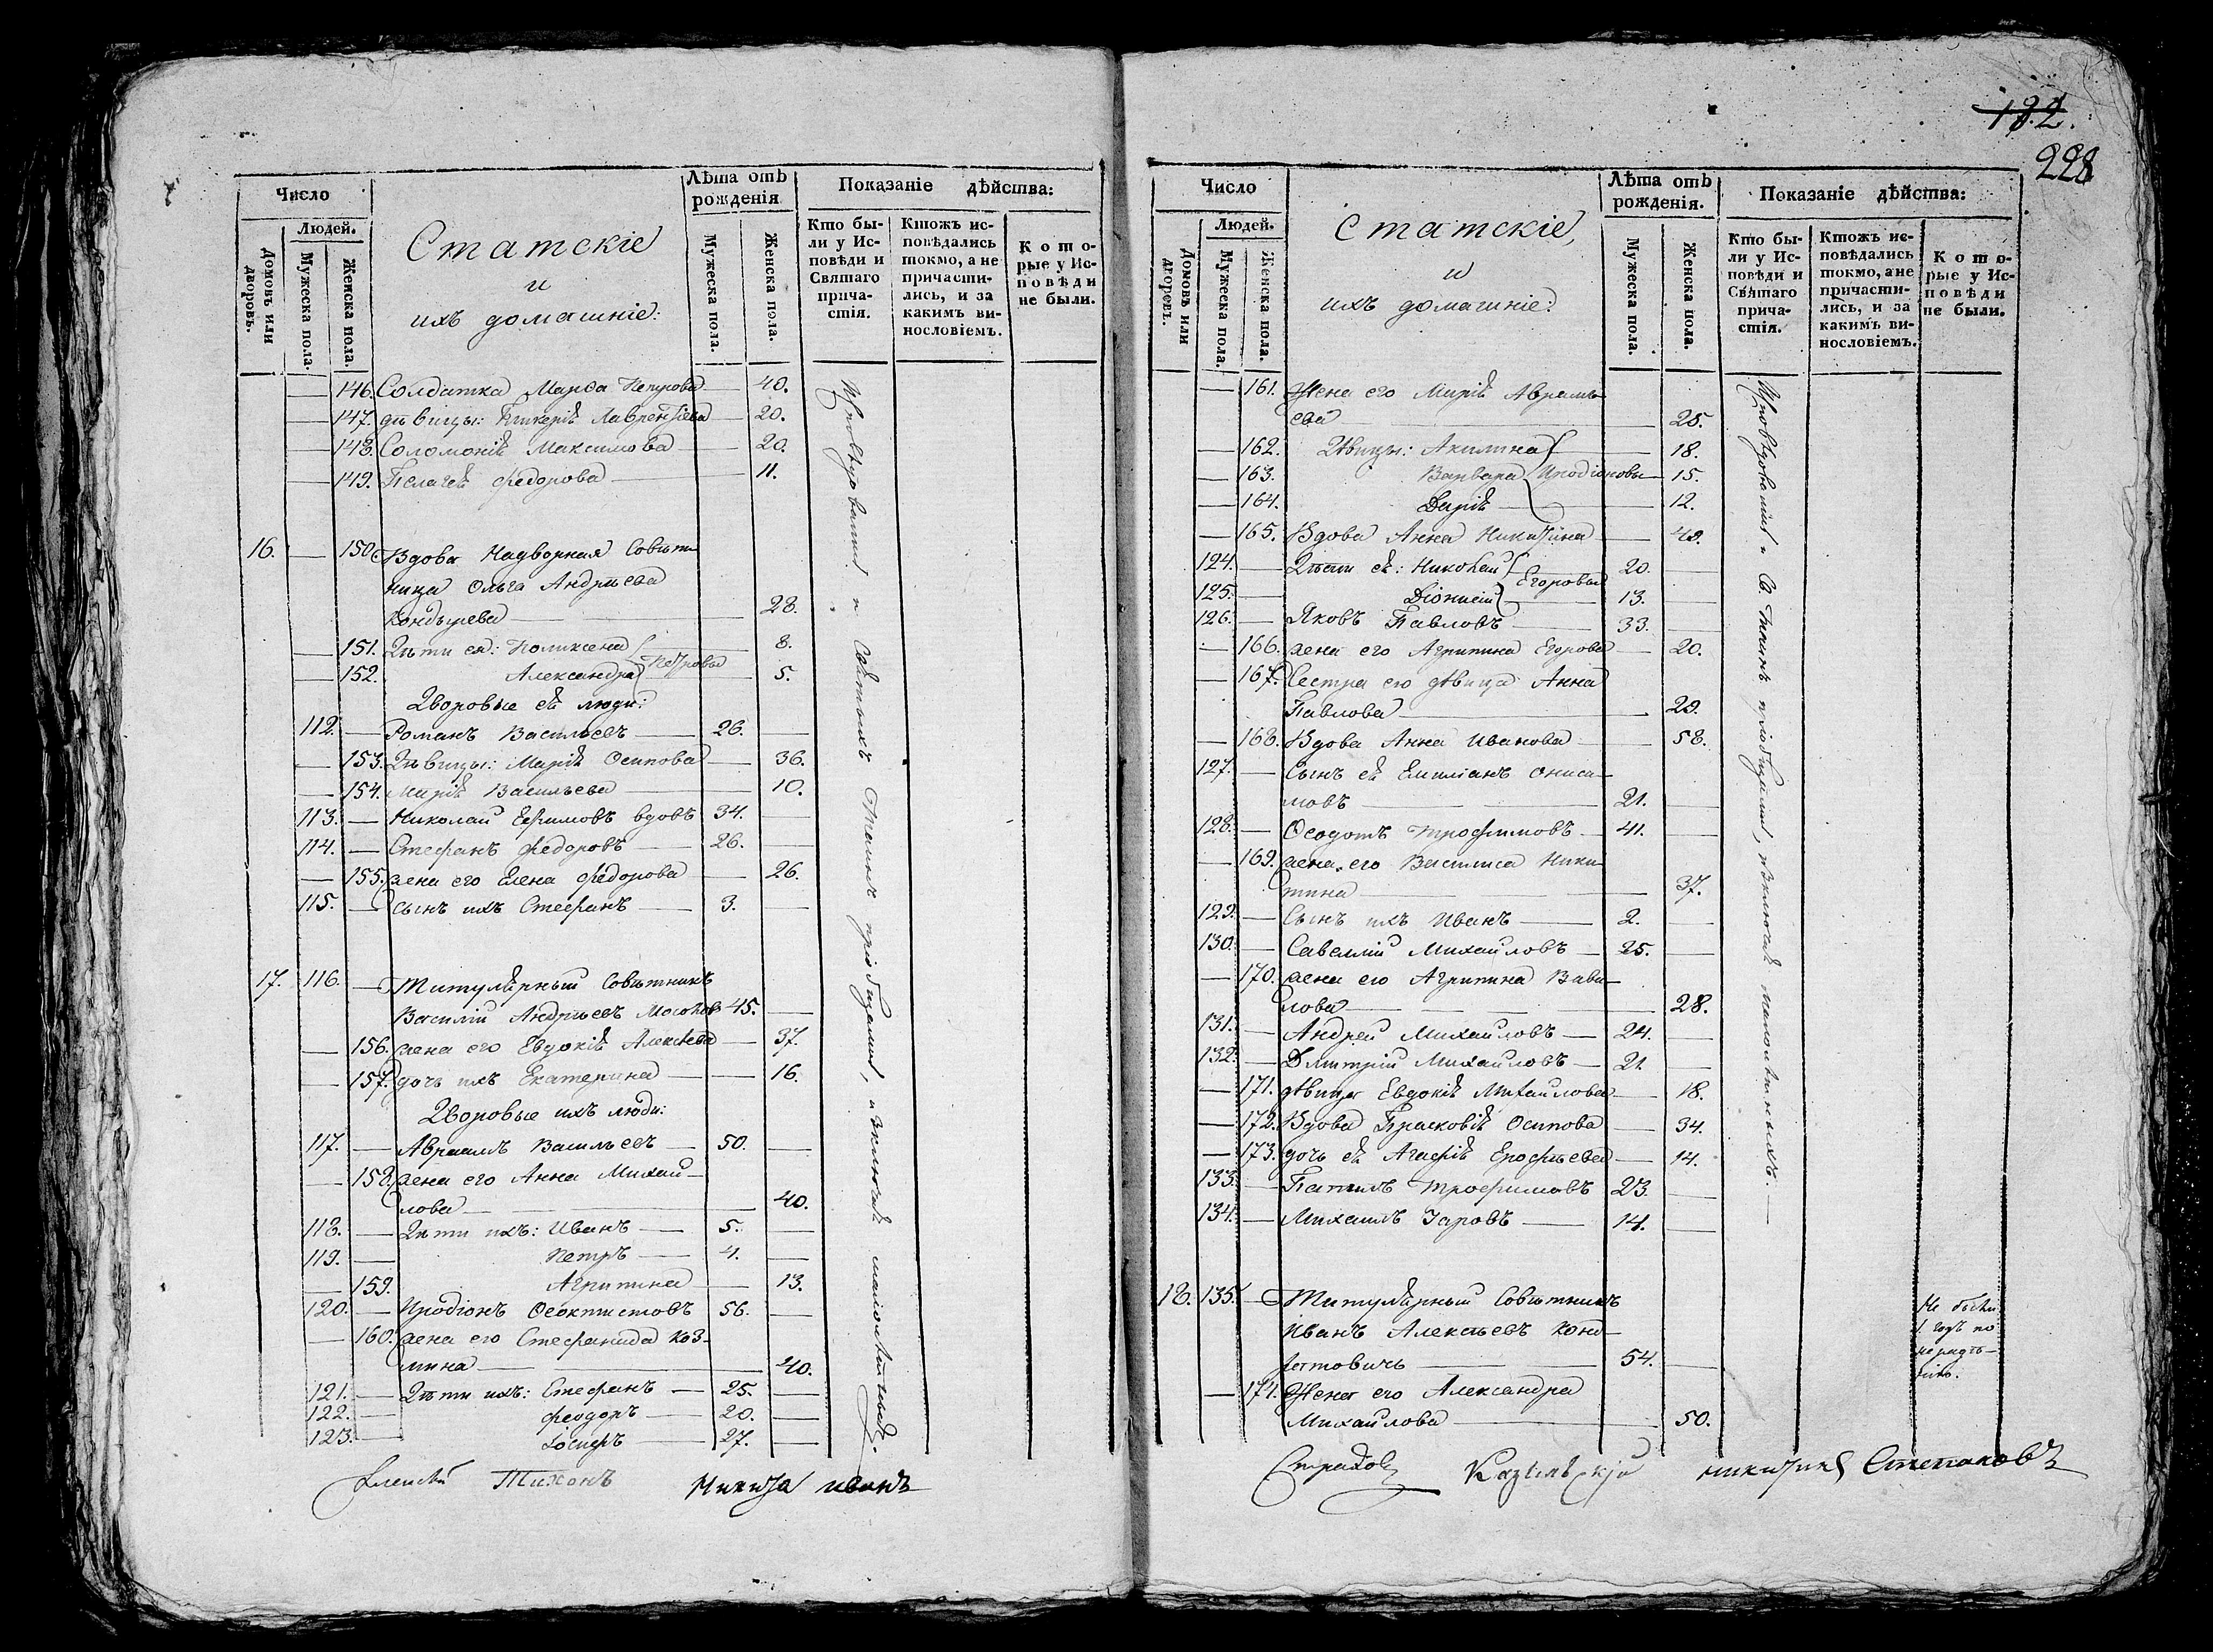 Число
Людей.
Домовъ или дворовъ.
Мужеска пола.
Женска пола.
Статскіе
и
ихъ домашніе:
Лѣта отъ рожденія
Мужеска пола.
Женска пола.
Показаніе дѣйства:
Кто бы-
ли у Ис-
повѣди и
Святаго
прича-
стія.
Ктожъ ис-
повѣдались
токмо, а не
причасти-
лись, и за
какимъ ви-
нословіемъ.
Кото-
рые у Ис-
повѣди
не были.
146. Солдатка Марѳа Петрова 40.
147. дѣвицы: Гликерія Лаврентіева 20.
148. Соломонія Максимова 20.
149. Пелагея Федорова 11.
16. 150. Вдова Надворная Совѣт-
ница Ольга Андреева
Кондырева 28.
151. Дѣти ея: Поликсена 8.
Петровы
152. Александра 5.
Дворовые ея люди:
112. Романъ Васильевъ 26.
153. Дѣвицы: Марія Осипова 36.
154. Марія Васильева 10.
113. Николай Ефимовъ вдовъ 34.
114. Стефанъ Федоровъ 26.
155. жена его Елена Федорова 26.
115. Сынъ ихъ Стефанъ 3.
17. 116. Титулярный Совѣтникъ
Василій Андреевъ 45.
156. жена его Евдокія Алексѣева 37.
157. дочь ихъ Екатерина 16.
Дворовые ихъ люди:
117. Авраамъ Васильевъ 50.
158. жена его Анна Михай-
лова 40.
118. Дѣти ихъ: Иванъ 5.
119. Петръ 4.
159. Агрипина 13.
120. Иродіонъ Ѳеоктистовъ 56.
160. жена его Стефанида Коз-
мина 40.
121. Дѣти ихъ: Стефанъ 25.
122. Феодоръ 20.
123. Іосифъ 27.
Исповѣдовались и Святыхъ Таинъ пріобщались, исключая малолѣтныхъ.
Алексѣй Тихонъ Никита Иванъ
182.
228
Число
Людей.
Домовъ или дворовъ.
Мужеска пола.
Женска пола.
Статскіе,
и
ихъ домашніе:
Лѣта отъ рожденія.
Мужеска пола.
Женска пола.
Показаніе дѣйства:
Кто бы-
ли у Ис-
повѣди и
Святаго
прича-
стія.
Ктожъ ис-
повѣдались
токмо, а не
причасти-
лись, и за
какимъ ви-
нословіемъ.
Кото-
рые у Ис-
повѣди
не были.
161. Жена его Марія Авраамо-
ва 25.
162. Дѣвицы: Акилина 18.
163. Варвара Иродіоновы 15.
164. Дарія 12.
165. Вдова Анна Никитина 49.
124. Дѣти ея: Николай 20.
Егоровы
125. Діонисій 13.
126. Яковъ Павловъ 33.
166. жена его Агрипина Егорова 20.
167. Сестра его дѣвица Анна
Павлова 29.
168. Вдова Анна Иванова 58.
127. Сынъ ея Емиліанъ Ониси-
мовъ 21.
128. Ѳеодотъ Трофимовъ 41.
169. жена его Василиса Ники-
тина 37.
129. Сынъ ихъ Иванъ 2.
130. Савелій Михайловъ 25.
170. жена его Агрипина Вави-
лова 28.
131. Андрей Михайловъ 24.
132. Дмитрій Михайловъ 21.
171. дѣвица Евдокія Михайлова 18.
172. Вдова Прасковія Осипова 34.
173. дочь ея Агафія Ерофеева 14.
133. Трофимовъ 23.
134. Михаилъ 14.
18. 135. Титулярный Совѣтникъ
Иванъ Алексѣевъ
54.
174. Жена его Александра
Михайлова 50.
Исповѣдовались и Св. Таинъ пріобщались, исключая малолѣтныхъ
Не были
1. годъ по
нерадѣ-
нію.
Никитинъ Степановъ